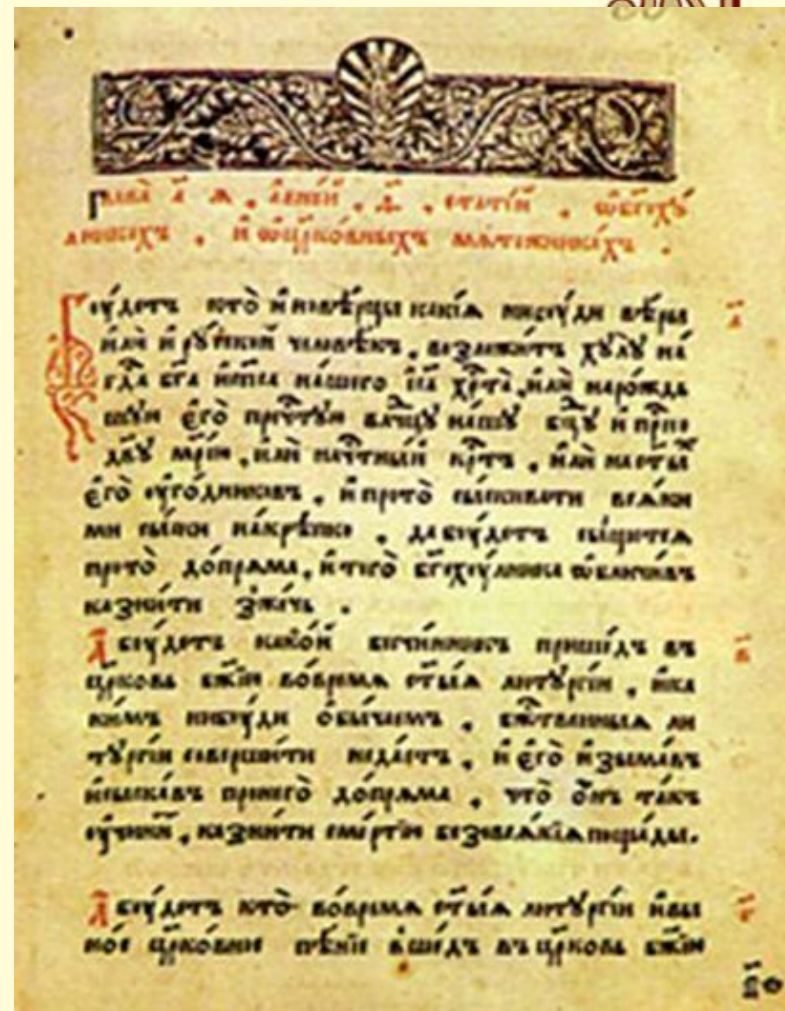 Глава а҃ ѧ , а в неи , ѳ҃ , статіи , ѡ бг҃охꙋ́
лникахъ , и҆ ѡ цр҃ко́вныхъ мѧте́жникахъ .
Бѹ́детъ кто̀ и҆новѣ́рцы какі́ѧ нибѹ́ди вѣ́ры
и҆лѝ и҆ рꙋ́скїй человѣ́къ , возложи́тъ хꙋлꙋ̀ на́
гдⷭ҇а бг҃а и҆ сп҃са на́шего і҆с҃а хрⷭ҇та̀ , и҆лѝ наро́ждь
шꙋю є҆го̀ прⷱ҇тꙋю влⷣчцꙋ на́шꙋ бцⷣꙋ и҆ прⷭ҇но
дв҃ꙋ мр҃і́ю , и҆лѝ на чⷭ҇тны́й крⷭ҇тъ , и҆лѝ на ст҃ы́хъ
є҆го̀ ѹ҆го́дниковъ , и҆ прото̀ сы́скивати всѧ́ки
ми сы́ски на́крѣпко , да бѹ́детъ сы́щетсѧ
прото̀ до́прѧма , и҆ того̀ бг҃охѹ́лника ѡ҆бличи́въ
казни́ти зже́чь .
А҆ бѹ́детъ како́й безчи́нникъ прише́дъ въ
цр҃ковь бж҃їю во́времѧ ст҃ы́ѧ литꙋргі́и , и҆ ка
ки́мъ нибѹ́ди ѻ҆бы́чаемъ , бжⷭ҇твенныѧ ли
тꙋргі́и соверши́ти неда́стъ , и҆ є҆го̀ и҆зыма́въ
и҆ сыска́въ пронего̀ до́прѧма , что̀ ѻ҆́нъ та́къ
ѹ҆чини́тъ , казни́ти сме́ртїю безовсѧ́кїѧ поща́ды .
А҆ бѹ́детъ кто̀ во́времѧ ст҃ы́ѧ литꙋргі́и и҆ вы
но́е цр҃ко́вное пѣ́нїе вше́дъ въ цр҃ковь бж҃їю